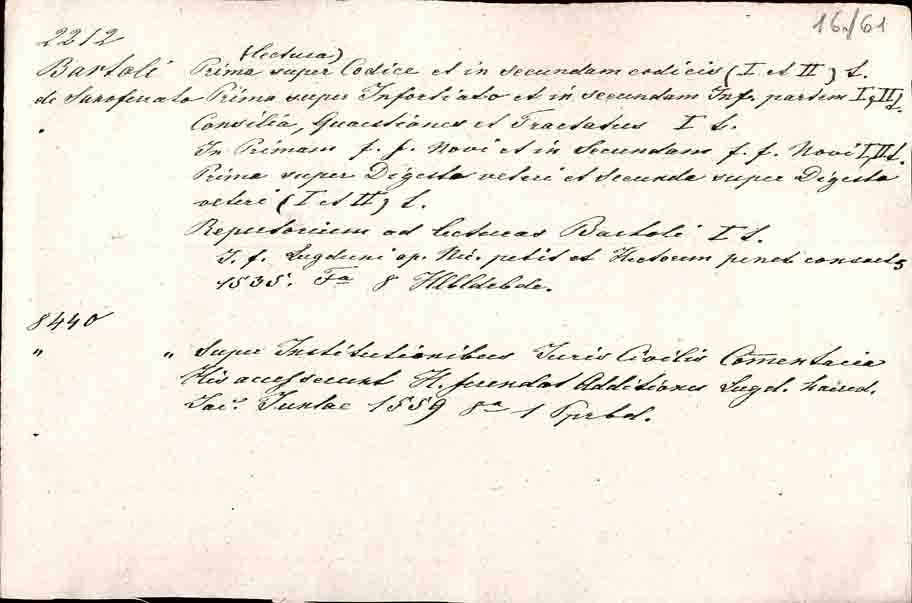 16./61
2212
(Lectura)
Bartoli Prima super Codice et in secundam codicis (I et II) t.
de Saxoferrato Prima super Infortiato et in secundam Inf. partem I, II t.
Consilia, Quaestiones et Tractatus I t.
In Primam f. f. Novi et in Secundam f. f. Novi I, II t.
Prima super Digesto veteri et secunda super Digesto
veteri (I et II) t.
Repertorium ad lecturas Bartoli I t.
T. f. Lugduni ap. Nic. petit et Hectorem penet
1535. Fa 8 Hlbldebde.
8440
" " Super Institutionibus Juris Civilis Comentaria
His accesserunt Additiones Lugd. haered.
Jac. Juntae 1559 8a 1